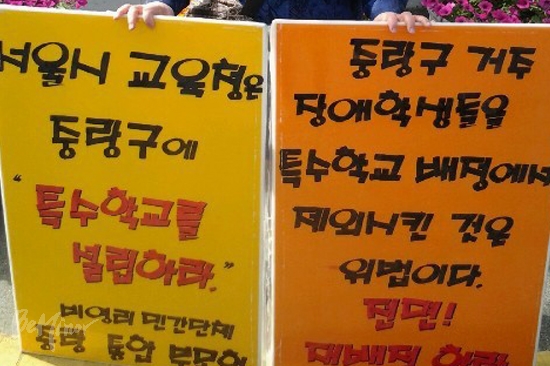 서울시 교육청은
중랑구에
"특수학교를
설립하라."
비영리 민간단체
중랑 통합 부모회
중랑구 거주
장애학생들을
특수학교 배정에서
제외시킨 것은
위법이다.
전면!
재배정 하라
BeMinor